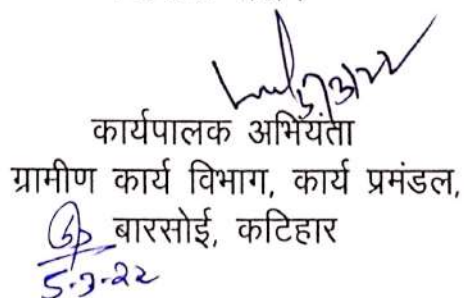 कार्यपालक अभियंता
ग्रामीण कार्य विभाग, कार्य प्रमंडल,
बारसोई, कटिहार
5-3-22